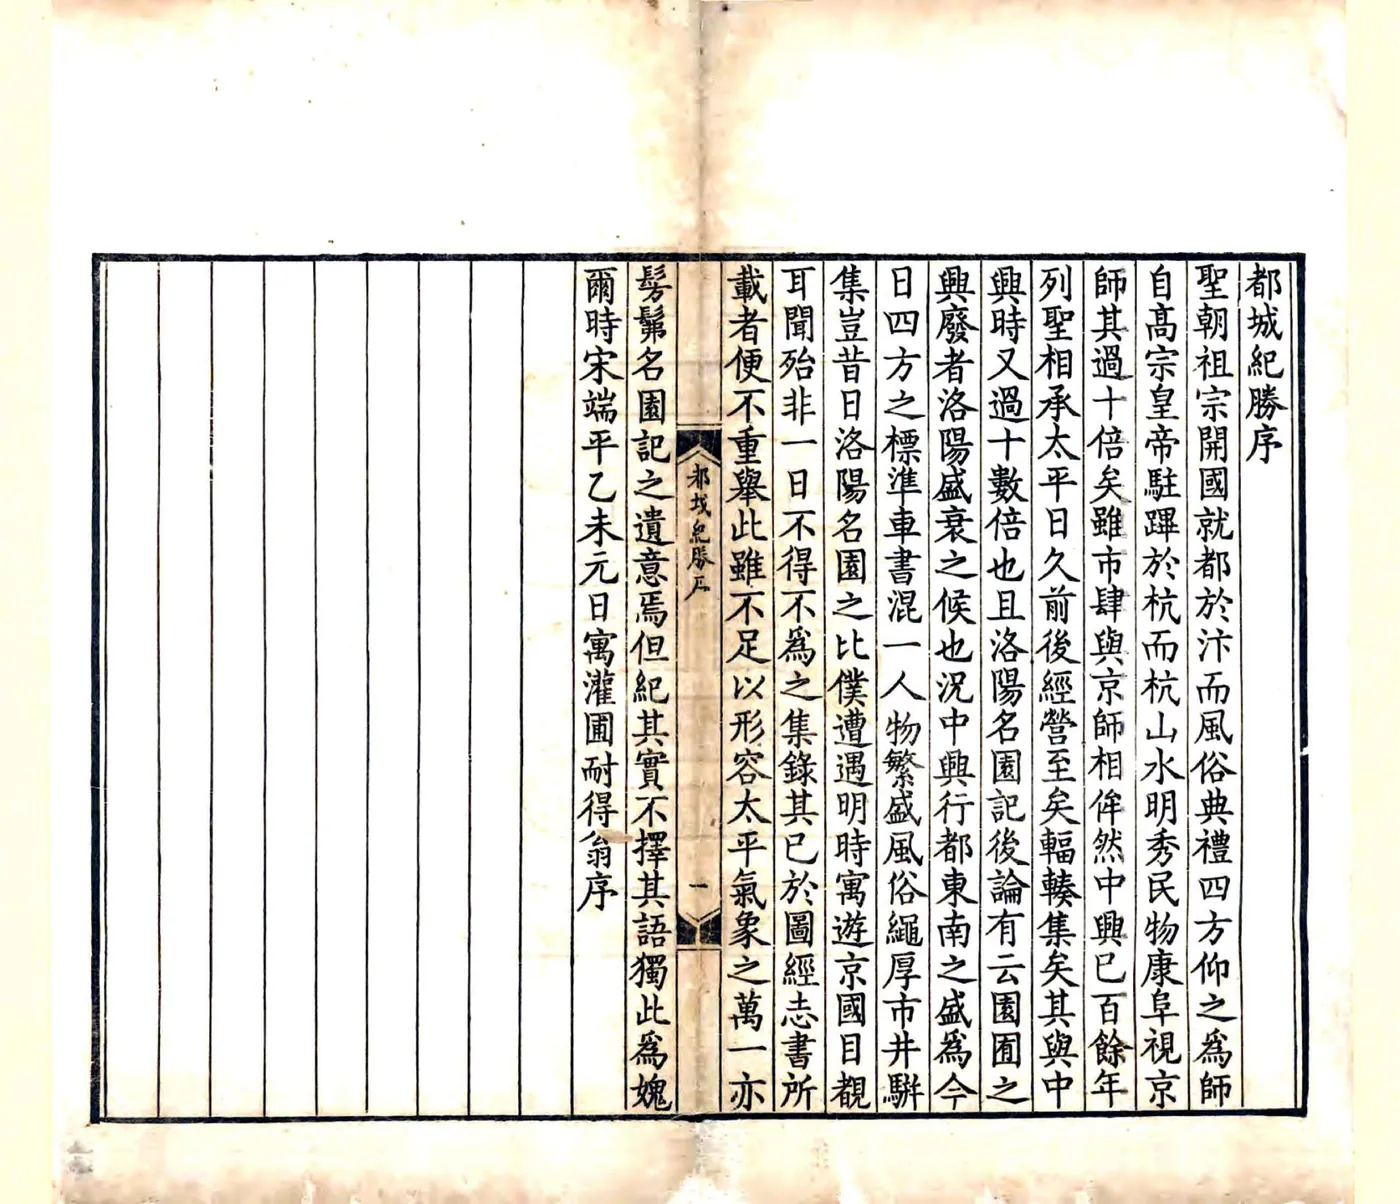 都城紀勝序
聖朝祖宗開國就都於汴而風俗典禮四方仰之為師
自高宗皇帝駐蹕於杭而杭山水明秀民物康阜視京
師其過十倍矣雖市肆與京師相侔然中興已百餘年
列聖相承太平日久前後經營至矣輻輳集矣其與中
興時又過十數倍也且洛陽名園記後論有云園囿之
興廢者洛陽盛衰之候也況中興行都東南之盛為今
日四方之標準車書混一人物繁盛風俗繩厚市井駢
集豈昔日洛陽名園之比僕遭遇明時寓遊京國目覩
耳聞殆非一日不得不為之集錄其已於圖經志書所
載者便不重舉此雖不足以形容太平氣象之萬一亦
都城紀勝序
一
髣髴名園記之遺意焉但紀其實不擇其語獨此為媿
爾時宋端平乙未元日寓灌圃耐得翁序